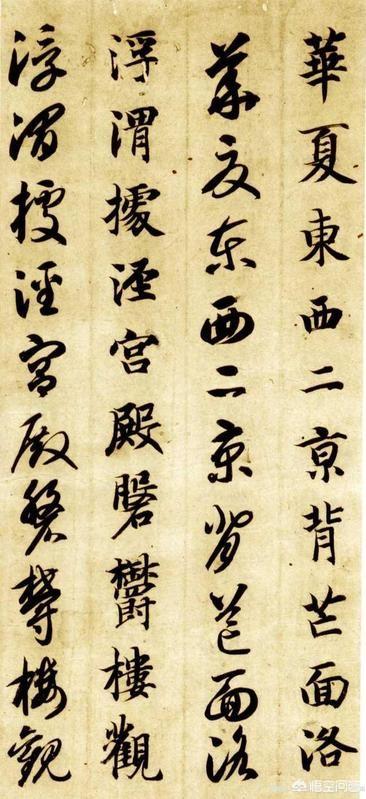 華夏東西二京背芒面洛
華夏東西二京背芒面洛
浮渭據涇宮殿磐鬱樓觀
浮渭據涇宮殿磐鬱樓觀
悟空问答